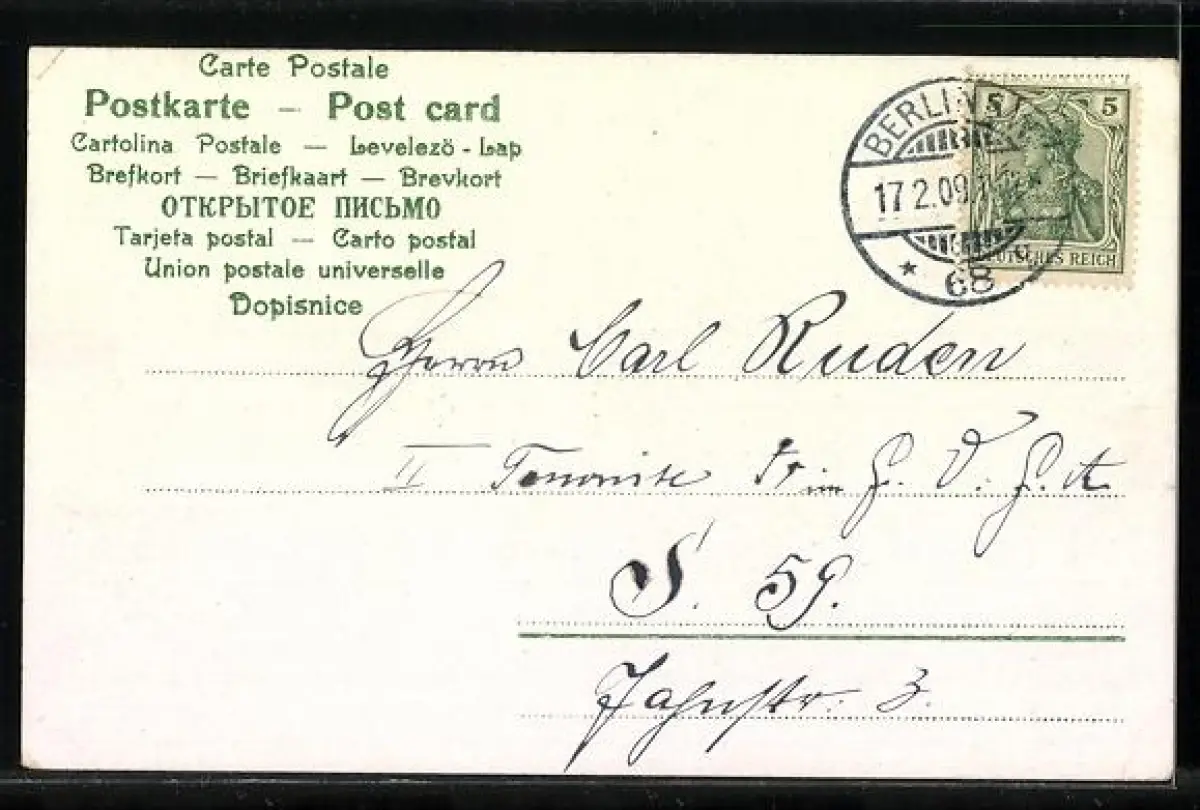 Carte Postale
Postkarte – Post card
Cartolina Postale — Levelezö-Lap
Brefkort — Briefkaart — Brevkort
ОТКРЫТОЕ ПИСЬМО
Tarjeta postal — Carto postal
Union postale universelle
Dopisnice
BERLIN
17.2.09.
* 68
5 5
DEUTSCHES REICH
Herrn Carl Ruden
II
S. 59.
Jahnstr. 3.